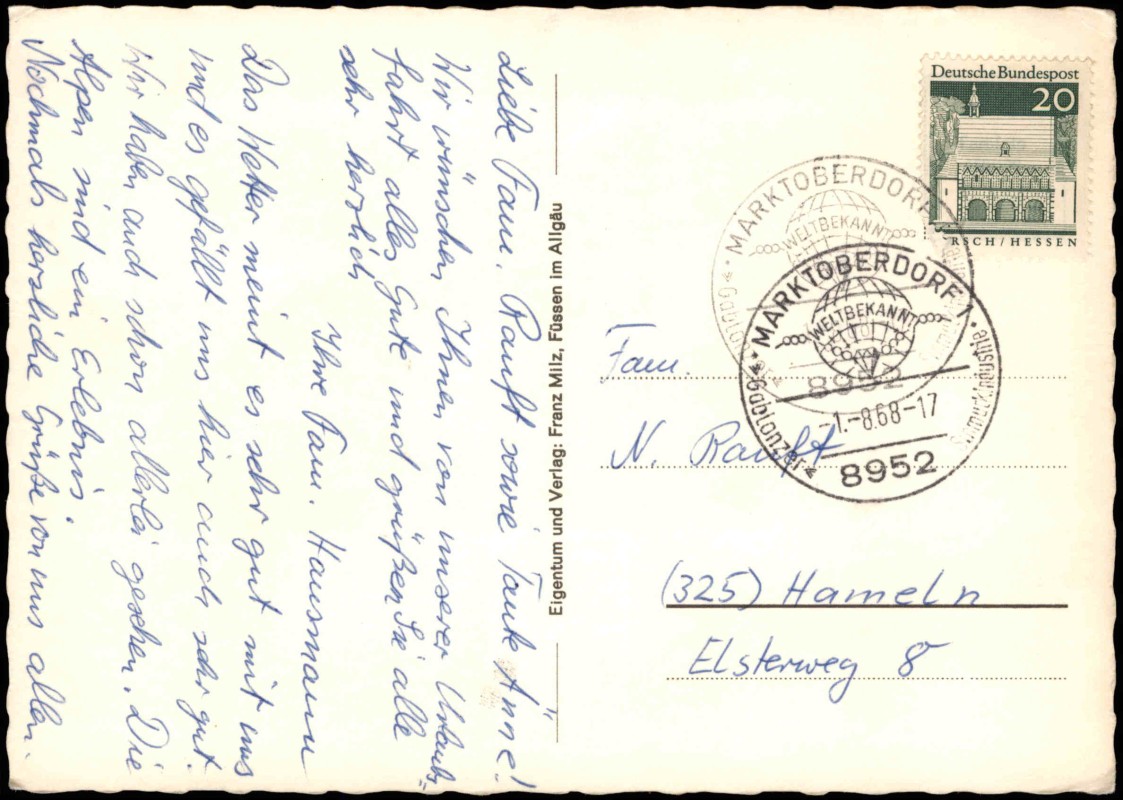 Liebe Fam. Rauft sowie Tante Änne!
Wir wünschen Ihnen von unserer Urlaubs=
fahrt alles Gute und grüßen Sie alle
sehr herzlich
Ihre Fam. Hausmann
Das Wetter meint es sehr gut mit uns
und es gefällt uns hier auch sehr gut.
Wir haben auch schon allerlei gesehen. Die
Alpen sind ein Erlebnis.
Nochmals herzliche Grüße von uns allen.
Eigentum und Verlag: Franz Milz, Füssen im Allgäu
Deutsche Bundespost
20
RSCH/HESSEN
MARKTOBERDORF
WELTBEKANNT
8952
MARKTOBERDORF 1
WELTBEKANNT
Gablonzer
Schmuckindustrie
-1.-8.68-17
8952
Fam.
N. Rauft
(325) Hameln
Elsterweg 8